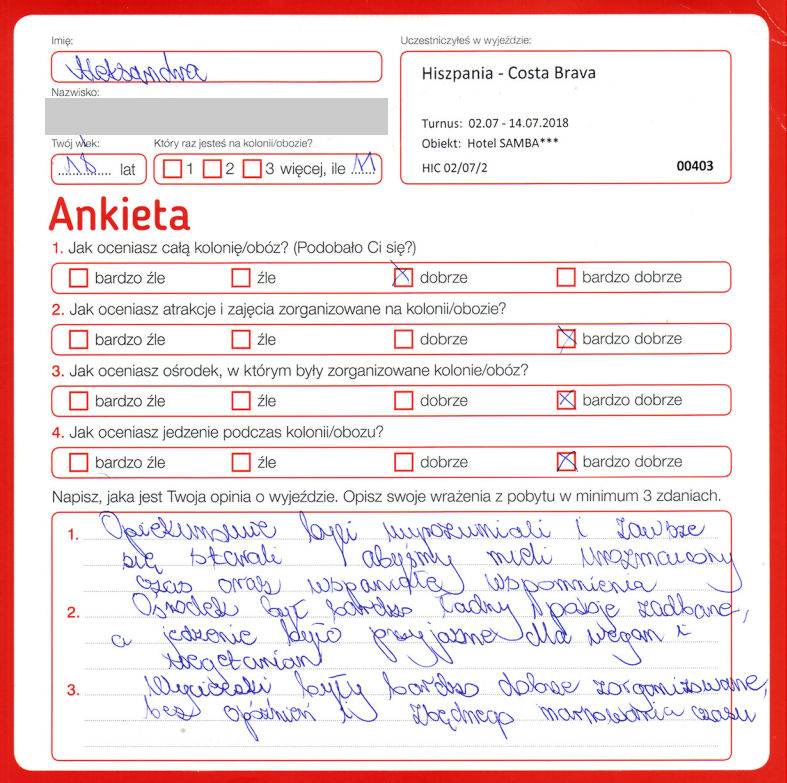 Imię:
Aleksandra
Uczestniczyłeś w wyjeździe:
Hiszpania - Costa Brava
Nazwisko:
Turnus: 02.07 - 14.07.2018
Obiekt: Hotel SAMBA***
HIC 02/07/2
00403
Twój wiek:
Który raz jesteś na kolonii/obozie?
lat
1 2 3 więcej, ile 11
Ankieta
1. Jak oceniasz całą kolonię/obóz? (Podobało Ci się?)
bardzo źle źle dobrze bardzo dobrze
2. Jak oceniasz atrakcje i zajęcia zorganizowane na kolonii/obozie?
bardzo źle źle dobrze bardzo dobrze
3. Jak oceniasz ośrodek, w którym były zorganizowane kolonie/obóz?
bardzo źle źle dobrze bardzo dobrze
4. Jak oceniasz jedzenie podczas kolonii/obozu?
bardzo źle źle dobrze bardzo dobrze
Napisz, jaka jest Twoja opinia o wyjeździe. Opisz swoje wrażenia z pobytu w minimum 3 zdaniach.
1. Opiekunowie byli wyrozumiali i zawsze
się starali abyśmy mieli urozmaicony
czas oraz wspaniałe wspomnienia
2. Ośrodek był bardzo ładny, zadbane,
a jedzenie było przyjazne dla wegan i
wegetarian
3. Wycieczki były bardzo dobrze zorganizowane,
bez opóźnień i zbędnego marnowania czasu